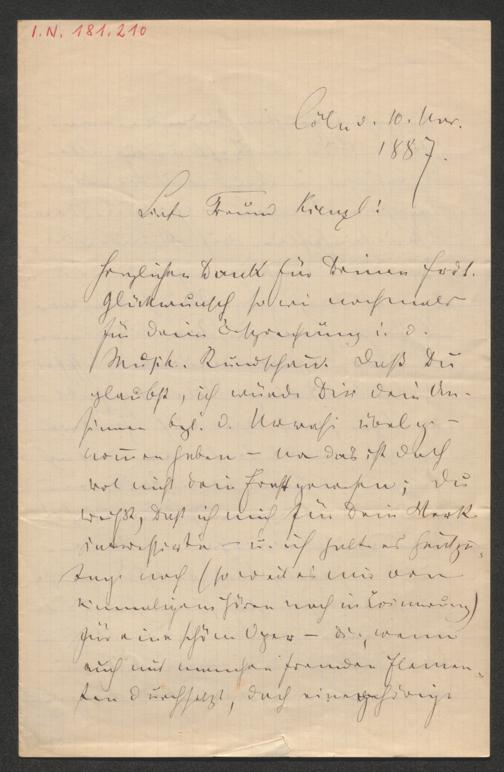 I.N. 181.210
Cöln d. 10. Nov.
1887.
Lieber Freund Kienzl!
Herzlichen Dank für Deinen frdl.
Glückwunsch sowie nochmals
für Deine Besprechung i. d.
Musik. Rundschau. Daß Du
glaubst, ich würde Dir Dein An-
sinnen bzl. d. Urvasi übel ge-
nommen haben – na das ist doch
wol nicht Dein Ernst gewesen; Du
weißt, daß ich mich für Dein Werk
interessirte – u. ich halte es heutzu-
tage noch (soweit es mir vom
einmaligen Hören noch in Erinnerung)
für eine schöne Oper – die, wenn
auch mit manchen fremden Elemen-
ten durchsetzt, doch eine gehörige